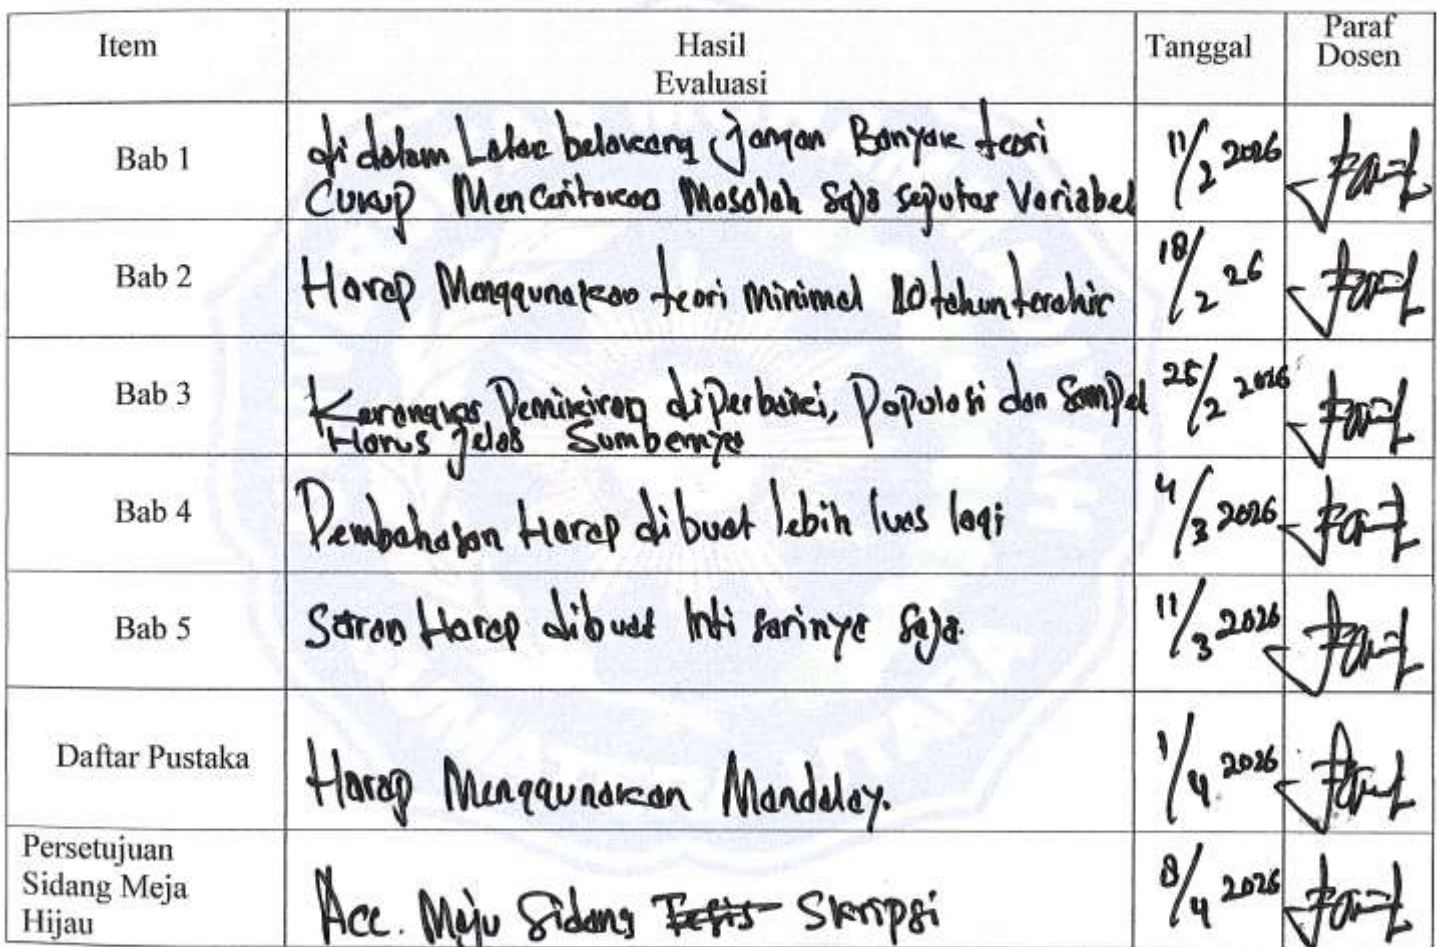 Item Hasil Evaluasi Tanggal Paraf Dosen
Bab 1 di dalam Latar belakang jangan Banyak teori 11/2 2026
Cukup Menceritakan Masalah saja seputar Variabel
Bab 2 Harap Menggunakan teori minimal 10 tahun terahir 18/2 26
Bab 3 Kerangka Pemikiran diperbaiki, Populasi dan Sampel 25/2 2026
Harus jelas Sumbernya
Bab 4 Pembahasan Harap dibuat lebih luas lagi 4/3 2026
Bab 5 Saran Harap dibuat Inti sarinya saja. 11/3 2026
Daftar Pustaka Harap Menggunakan Mandalay. 1/4 2026
Persetujuan Sidang Meja Hijau Acc. Maju Sidang Tesis Skripsi 8/4 2026